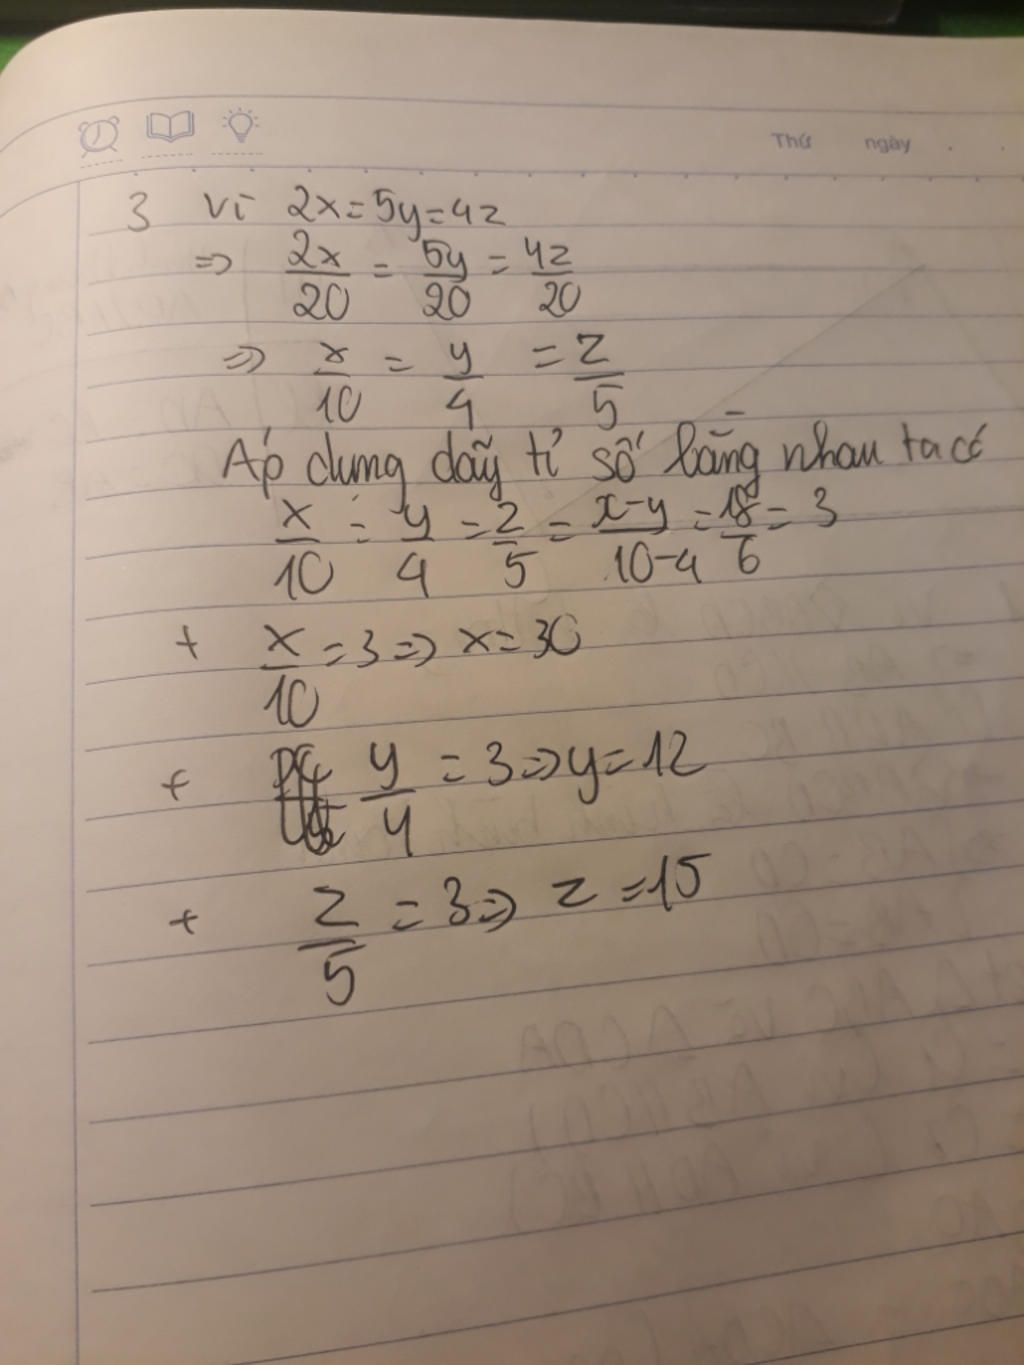 Thứ ngày
3 Vì 2x=5y=4z
=> 2x/20 = 5y/20 = 4z/20
=> x/10 = y/4 = z/5
Áp dụng dãy tỉ số bằng nhau ta có
x/10 = y/4 = z/5 = x-y/10-4 = 18/6 = 3
+ x/10 = 3 => x = 30
+ y/4 = 3 => y = 12
+ z/5 = 3 => z = 15